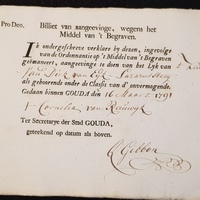 Pro Deo.
Billiet van aangeevinge, wegens het
Middel van 't Begraven.
Ik ondergeschreve verklare by dezen, ingevolge
van de Ordonnantie op 't Middel van 't Begraven
geëmaneert, aangevinge te dien van het Lyk van
Jan Dirk van
als gehoorende onder de Classis van d' onvermogende.
Gedaan binnen GOUDA den 16 Maart 1791
Cornelia van
Ter Secretarye der Stad GOUDA,
geteekend op datum als boven.